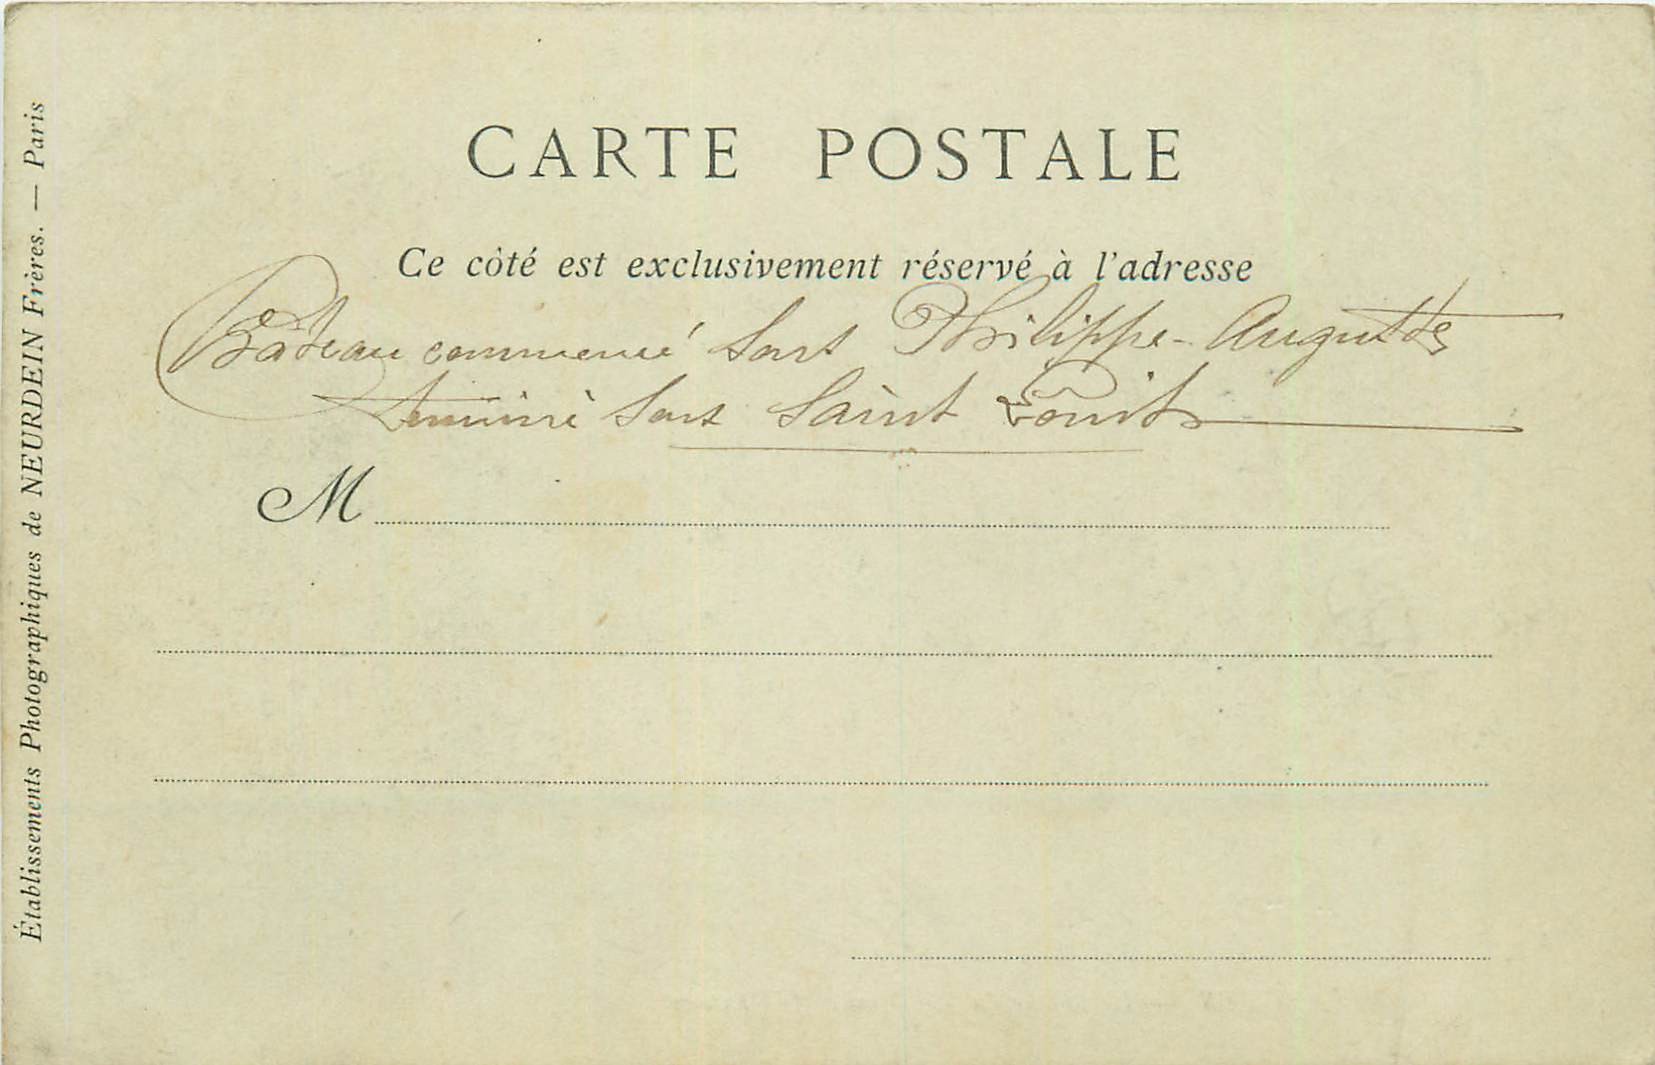 CARTE POSTALE
Ce côté est exclusivement réservé à l'adresse
commencé sous Philippe-Auguste
terminé sous Saint Louis
M
Établissements Photographiques de NEURDEIN Frères. — Paris